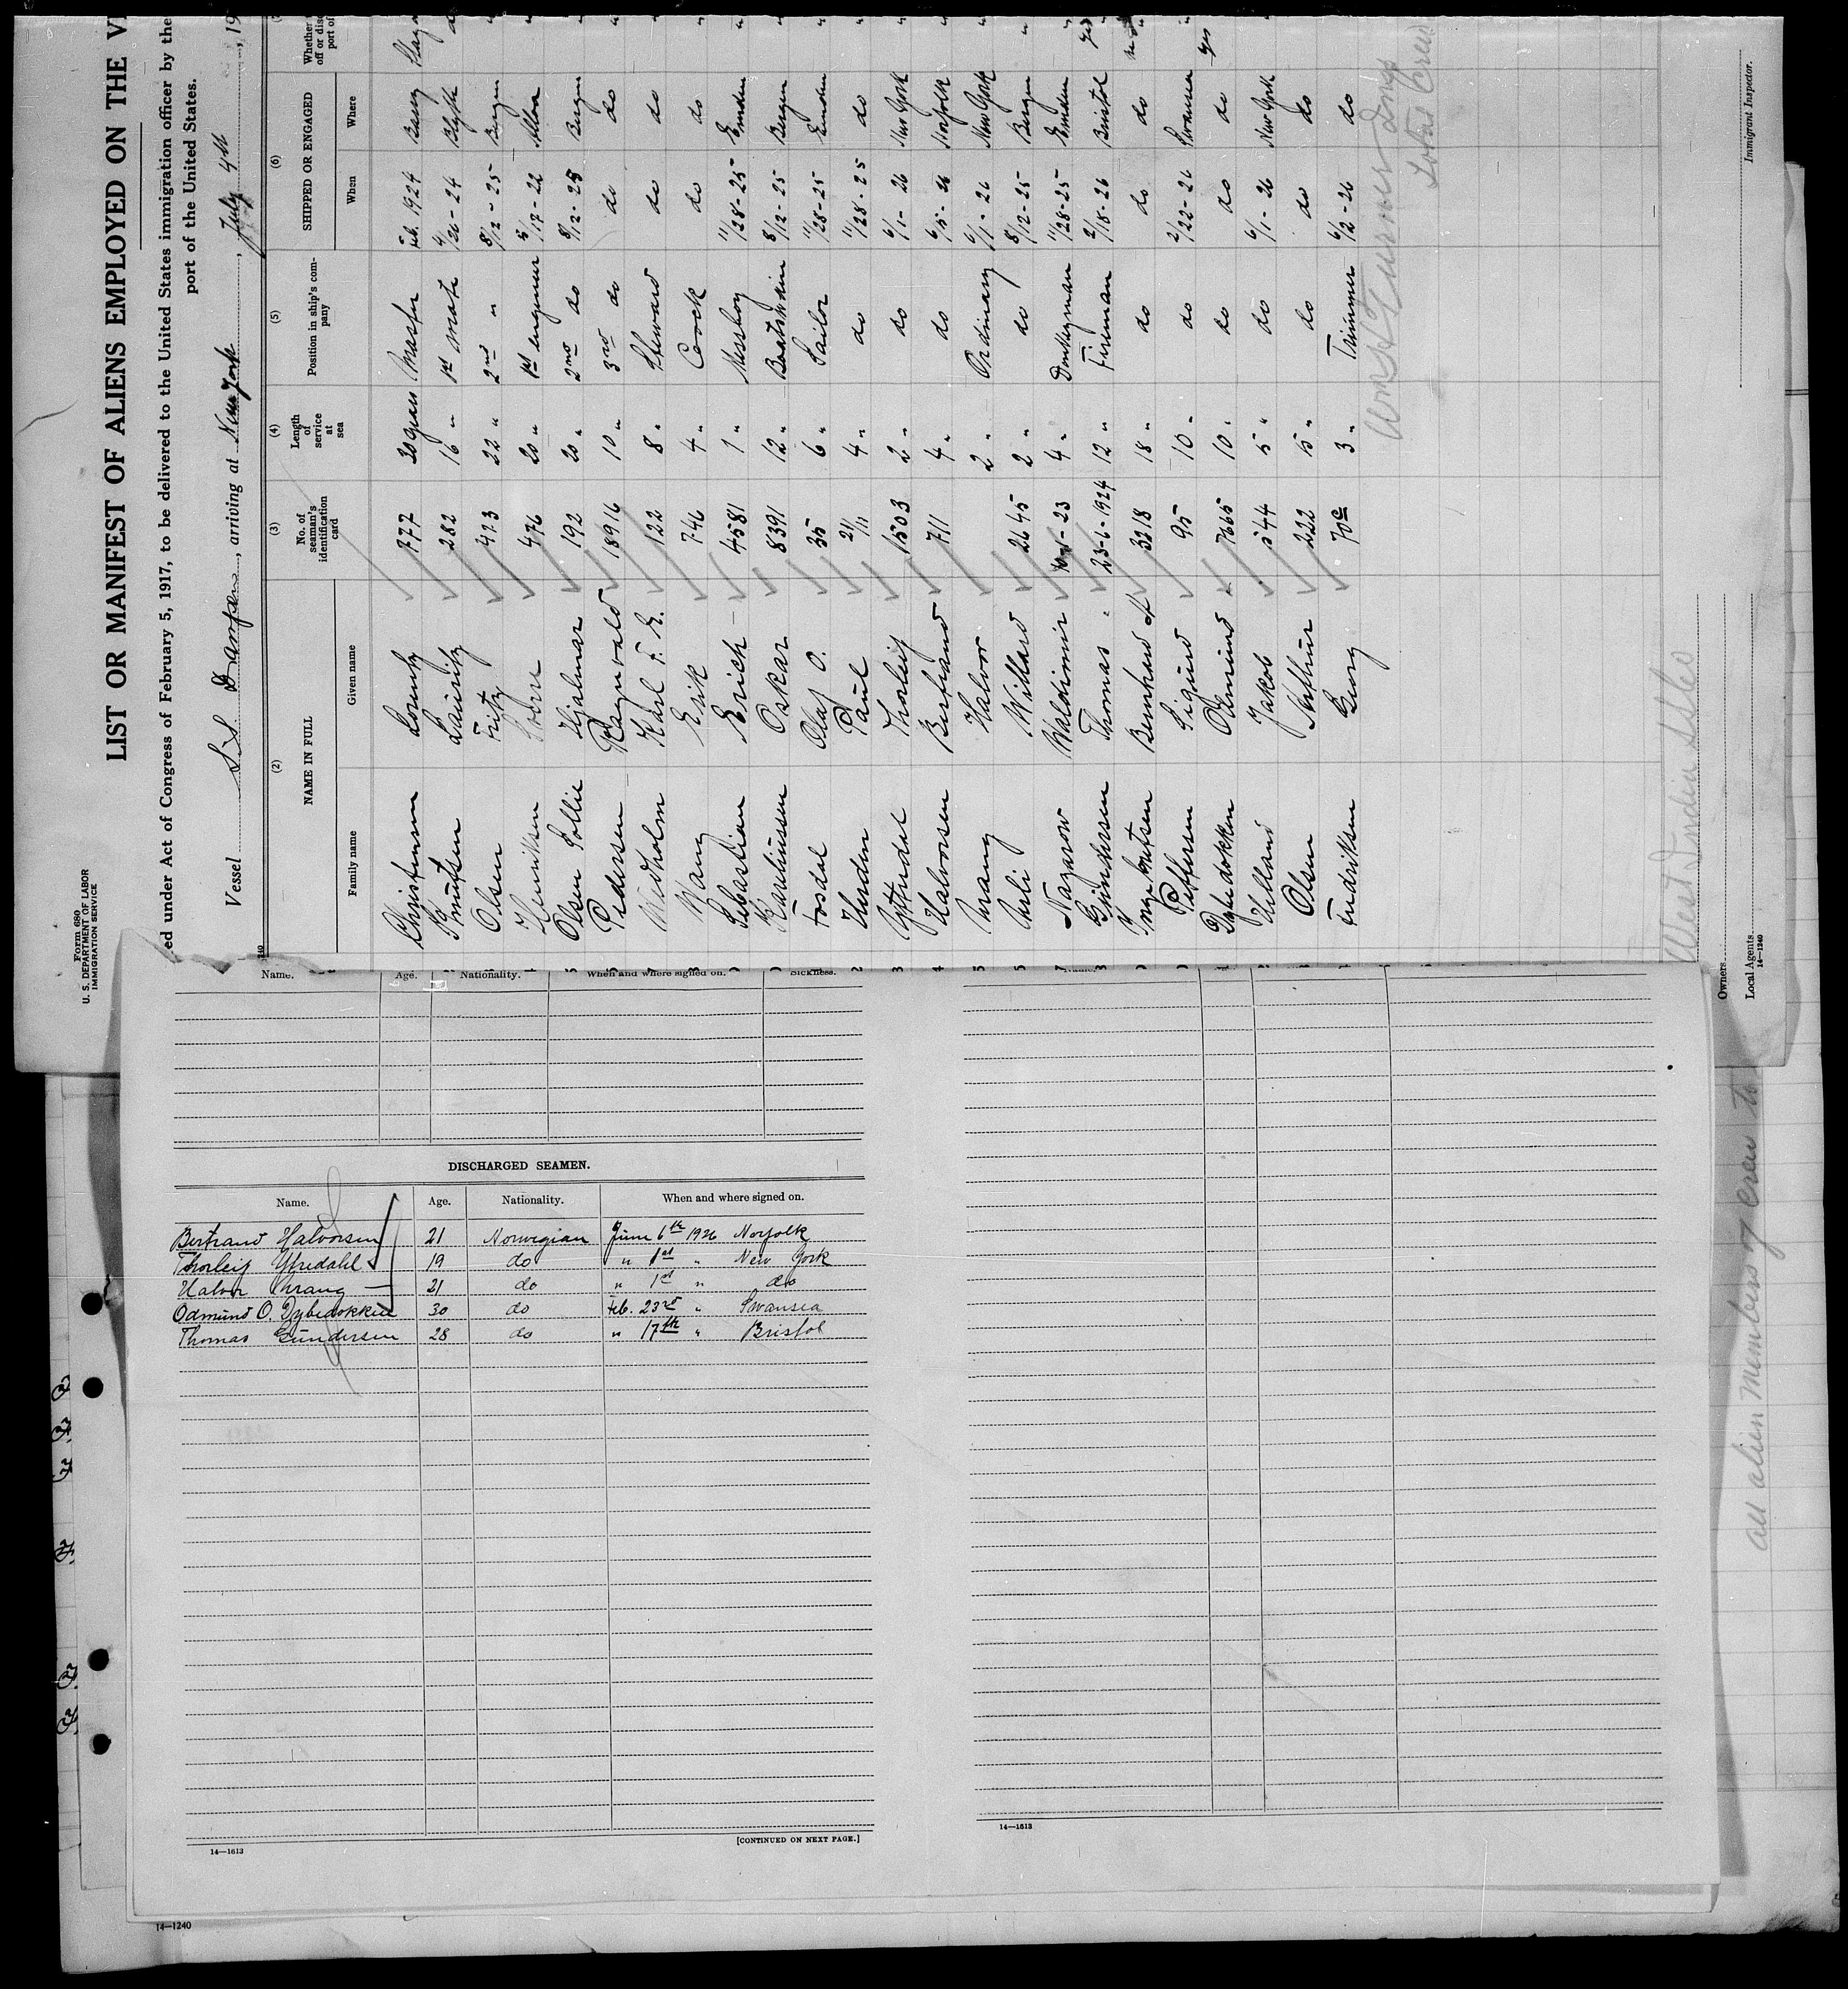 Form 680
U. S. DEPARTMENT OF LABOR
IMMIGRATION SERVICE
LIST OR MANIFEST OF ALIENS EMPLOYED ON THE
ed under Act of Congress of February 5, 1917, to be delivered to the United States immigration officer by the
port of the United States.
Vessel S.S. , arriving at New York, July 4th, 19
(2) (3) (4) (5) (6)
NAME IN FULL No. of seaman's identification card Length of service at sea Position in ship's company SHIPPED OR ENGAGED Whether
Family name Given name When Where
Christensen 777 30 years Master Feb. 1924
Knutsen Lauritz 282 16 " 1st mate 4/26-24 Blyth
Olsen Fritz 423 22 " 2nd " 8/12-25 Bergen
Henriksen 476 20 " 1st engineer 5/17-22
Olsen Sollie Hjalmar 192 20 " 2nd do 8/12-25 Bergen
Pedersen Ragnvald 18916 10 " 3rd do do do
Karl F. E. 122 8 " Steward do do
Wang Erik 746 4 " Coock do do
Sebastian Erich 4581 1 " Messboy 11/28-25 Emden
Rasmussen Oskar 8391 12 " Boatswain 8/12-25 Bergen
Fosdal Olaf O. 35 6 " Sailor 11/28-25 Emden
Paul 21/11 4 " do 11/28-25 do
Thorleif 1503 2 " do 6/1-26 New York
Halvorsen Bertrand 711 4 " do 6/5-26 Norfolk
Halvor 2 " Ordinary 6/1-26 New York
Willard 2645 2 " do 8/12-25 Bergen
Nazarow Waldimir 4 " Donkeyman 11/28-25 Emden
Gundersen Thomas 23-6-1924 12 " Fireman 2/18-26 Bristol
Bernhard 3218 18 " do do do
Pettersen Sigurd 95 10 " do 2/22-26 Swansea
Dybedokken Odmund 7665 10 " do do do
Helland Jakob 544 5 " do 6/1-26 New York
Olsen Arthur 222 15 " do do do
Fredriksen Georg 70c 3 " Trimmer 6/2-26 do
Owners
Local Agents
14—1240
Immigrant Inspector.
Name. Age. Nationality. When and where signed on. Sickness.
DISCHARGED SEAMEN.
Name. Age. Nationality. When and where signed on.
Bertrand Halvorsen 21 Norwegian June 6th 1926 Norfolk
Thorleif Yttredahl 19 do " 1st " New York
Halvor 21 do " 1st " do
Odmund O. Dybedokken 30 do Feb. 23rd " Swansea
Thomas Gundersen 28 do " 17th " Bristol
14—1613
[CONTINUED ON NEXT PAGE.]
14—1613
14—1240
all alien Members of crew to